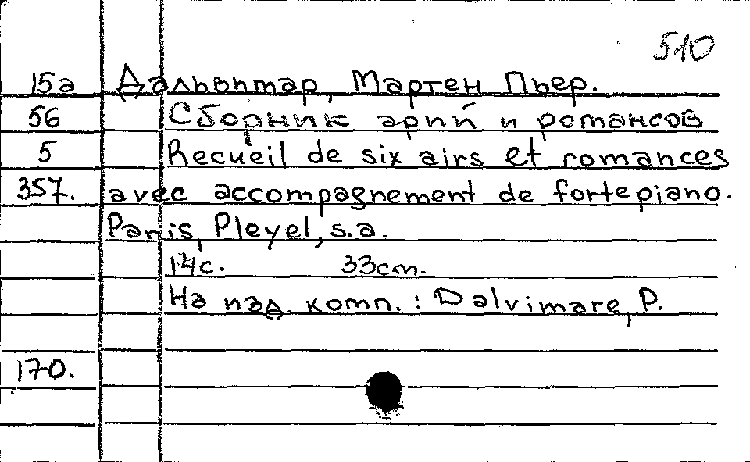 510
15а Дальвимар, Мартен Пьер.
56 Сборник арий и романсов
5 Recueil de six airs et romances
357. avec accompagnement de fortepiano.
Paris, Pleyel, s.a.
14с. 33cm.
На изд. комп.: Dalvimare, P.
170.